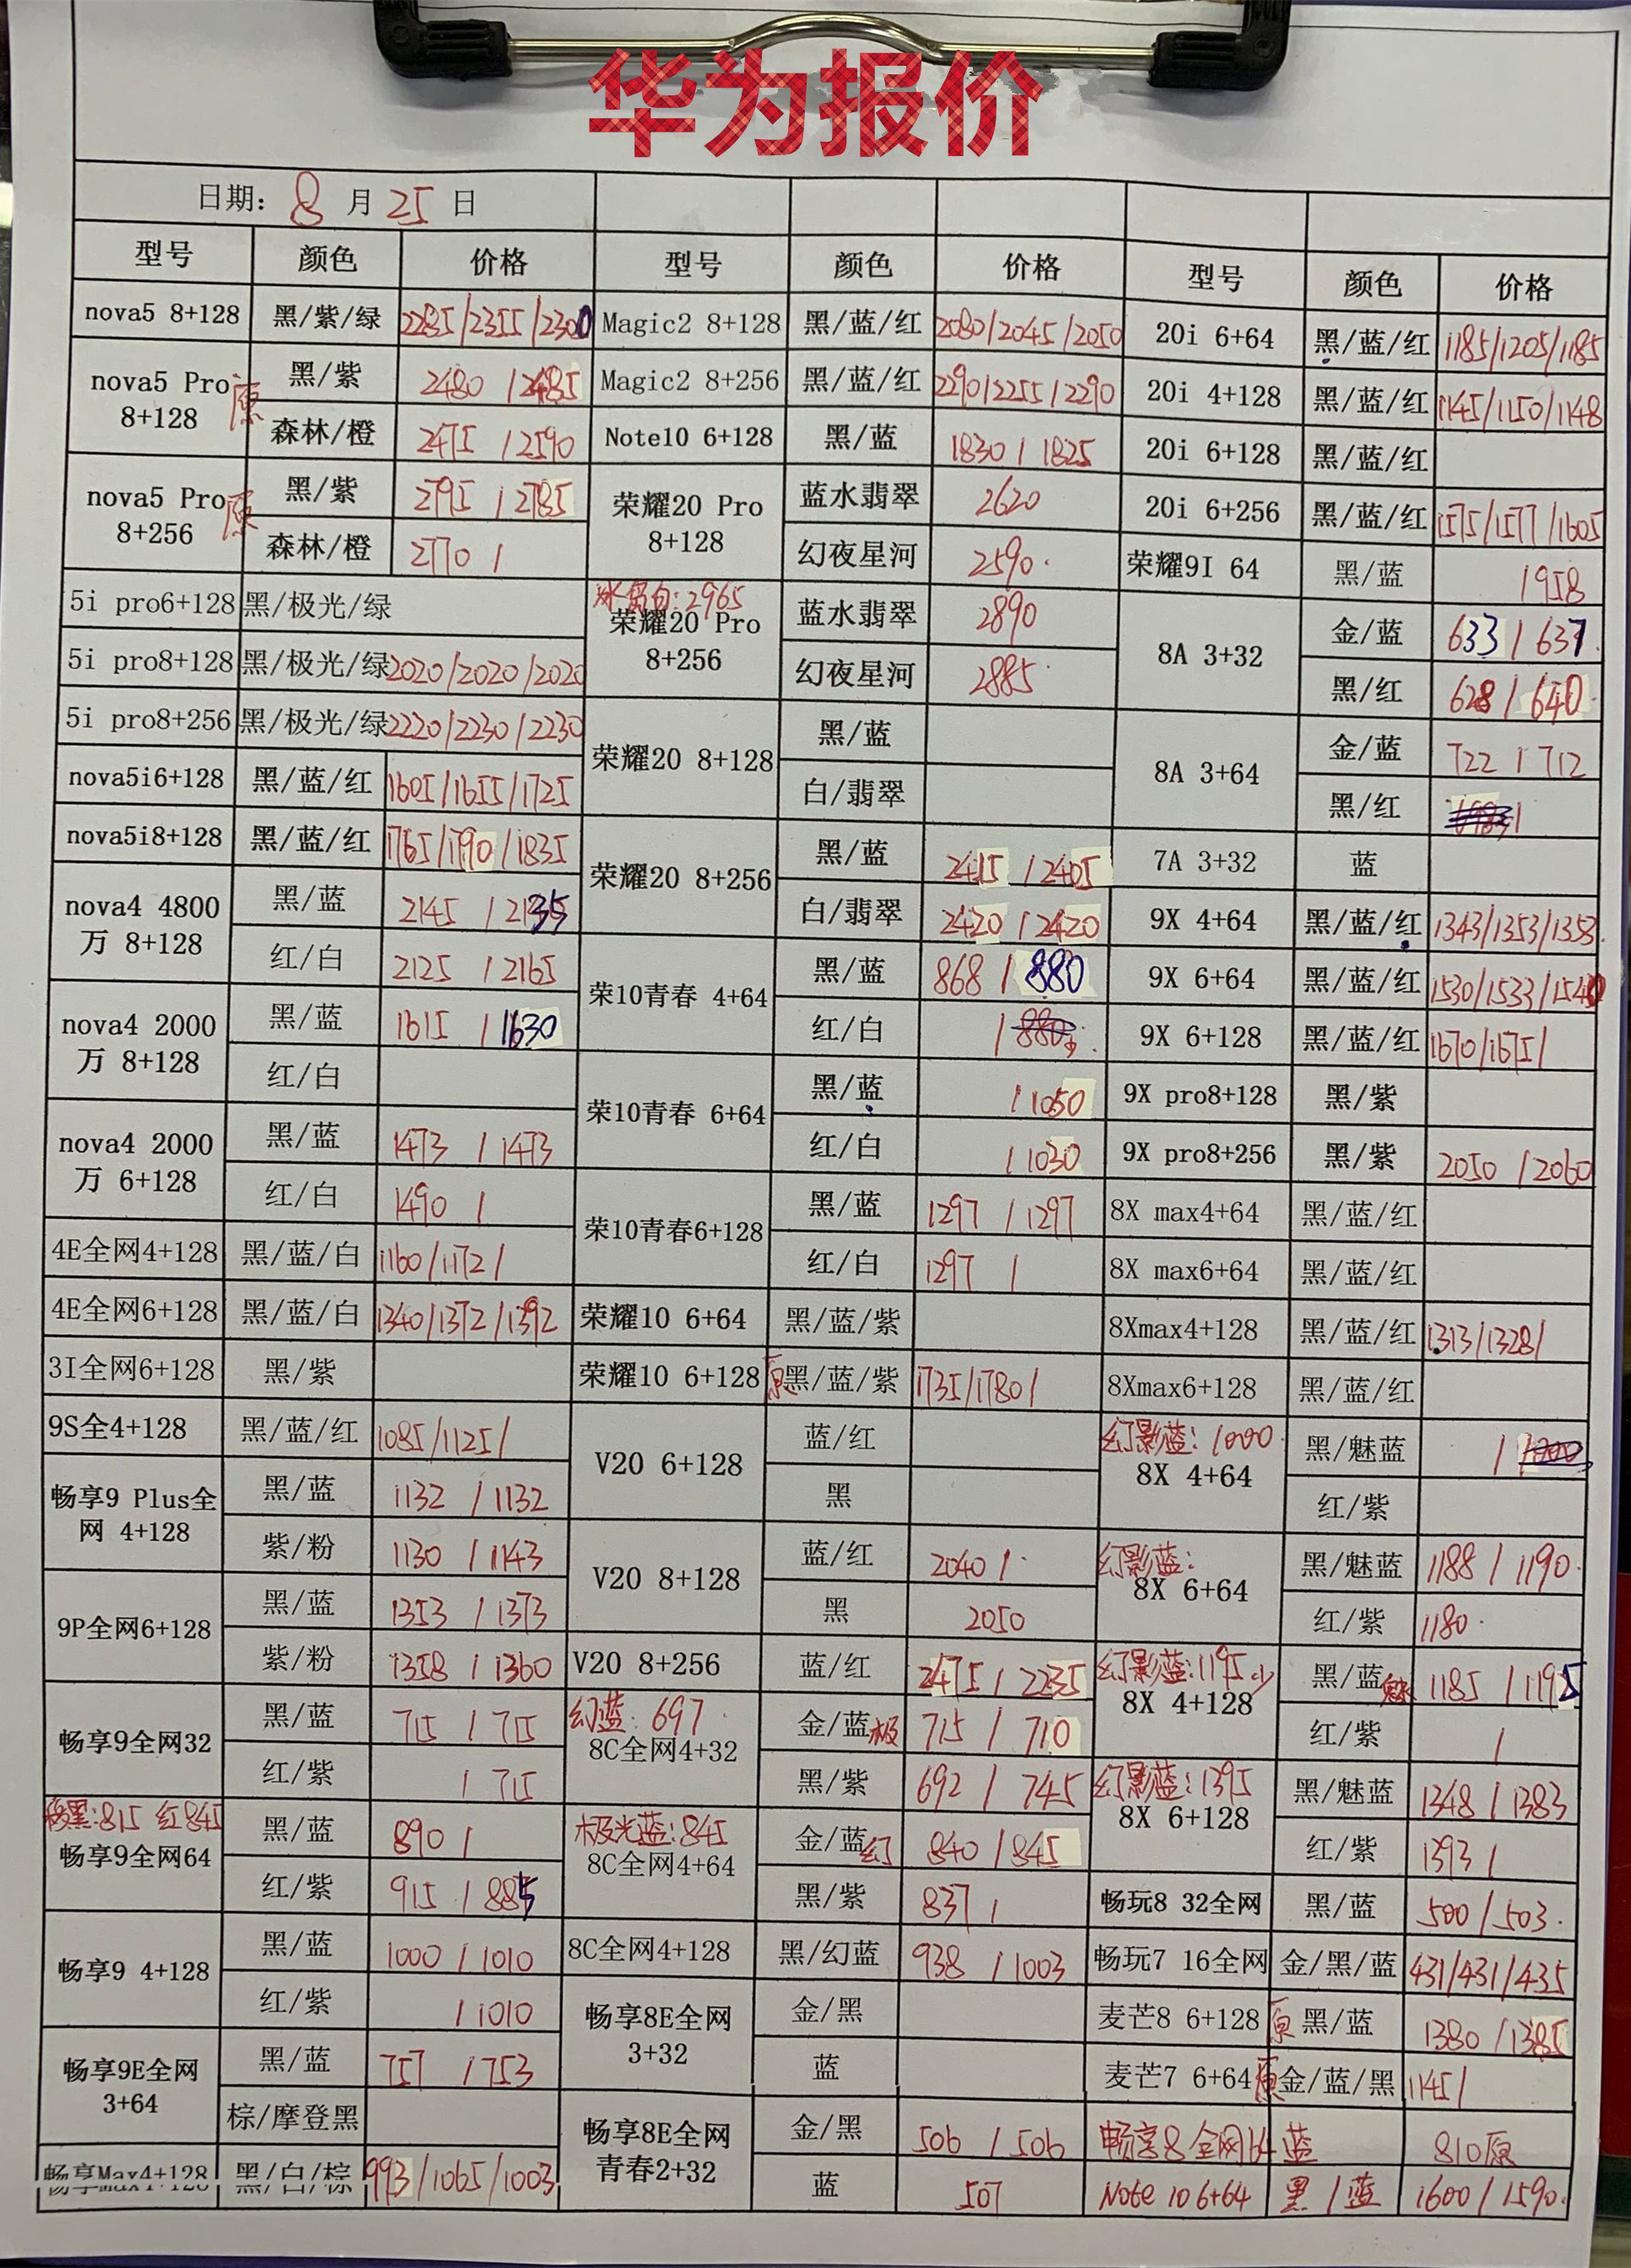 华为报价
日期: 8 月 25 日
型号 颜色 价格 型号 颜色 价格 型号 颜色 价格
nova5 8+128 黑/紫/绿 2285/2355/2300
nova5 Pro 原
8+128
黑/紫 2480 / 2485
森林/橙 2475 / 2590
nova5 Pro 原
8+256
黑/紫 2795 / 2785
森林/橙 2770 /
5i pro6+128 黑/极光/绿
5i pro8+128 黑/极光/绿 2020/2020/2020
5i pro8+256 黑/极光/绿 2220/2230/2230
nova5i6+128 黑/蓝/红 1605/1655/1725
nova5i8+128 黑/蓝/红 1765/1790/1835
nova4 4800
万 8+128
黑/蓝 2145 / 2135
红/白 2125 / 2165
nova4 2000
万 8+128
黑/蓝 1615 / 1630
红/白
nova4 2000
万 6+128
黑/蓝 1473 / 1473
红/白 1490 /
4E全网4+128 黑/蓝/白 1160/1172/
4E全网6+128 黑/蓝/白 1340/1372/1392
3I全网6+128 黑/紫
9S全4+128 黑/蓝/红 1085/1125/
畅享9 Plus全
网 4+128
黑/蓝 1132 / 1132
紫/粉 1130 / 1143
9P全网6+128
黑/蓝 1353 / 1373
紫/粉 1358 / 1360
畅享9全网32
黑/蓝 715 / 715
红/紫 / 715
黑:815 红845
畅享9全网64
黑/蓝 890 /
红/紫 915 / 885
畅享9 4+128
黑/蓝 1000 / 1010
红/紫 / 1010
畅享9E全网
3+64
黑/蓝 757 / 753
棕/摩登黑
畅享Max4+128 黑/白/棕 993/1065/1003
Magic2 8+128 黑/蓝/红 2080/2045/2050
Magic2 8+256 黑/蓝/红 2290/2255/2290
Note10 6+128 黑/蓝 1830 / 1825
荣耀20 Pro
8+128
蓝水翡翠 2620
幻夜星河 2590
冰岛白:2965
荣耀20 Pro
8+256
蓝水翡翠 2890
幻夜星河 2885
荣耀20 8+128
黑/蓝
白/翡翠
荣耀20 8+256
黑/蓝 2415 / 2405
白/翡翠 2420 / 2420
荣10青春 4+64
黑/蓝 868 / 880
红/白 /
荣10青春 6+64
黑/蓝 / 1050
红/白 / 1030
荣10青春6+128
黑/蓝 1297 / 1297
红/白 1297 /
荣耀10 6+64 黑/蓝/紫
荣耀10 6+128 原 黑/蓝/紫 1735/1780/
V20 6+128
蓝/红
黑
V20 8+128
蓝/红 2040 /
黑 2050
V20 8+256 蓝/红 2475 / 2235
幻蓝: 697
8C全网4+32
金/蓝极 715 / 710
黑/紫 692 / 745
极光蓝:845
8C全网4+64
金/蓝幻 840 / 845
黑/紫 837 /
8C全网4+128 黑/幻蓝 938 / 1003
畅享8E全网
3+32
金/黑
蓝
畅享8E全网
青春2+32
金/黑 506 / 506
蓝 507
20i 6+64 黑/蓝/红 1185/1205/1185
20i 4+128 黑/蓝/红 1145/1150/1148
20i 6+128 黑/蓝/红
20i 6+256 黑/蓝/红 1575/1577/1605
荣耀9I 64 黑/蓝 / 958
8A 3+32
金/蓝 633 / 637
黑/红 628 / 640
8A 3+64
金/蓝 722 / 712
黑/红 /
7A 3+32 蓝
9X 4+64 黑/蓝/红 1343/1353/1353
9X 6+64 黑/蓝/红 1530/1533/1540
9X 6+128 黑/蓝/红 1670/1675/
9X pro8+128 黑/紫
9X pro8+256 黑/紫 2050 / 2060
8X max4+64 黑/蓝/红
8X max6+64 黑/蓝/红
8Xmax4+128 黑/蓝/红 1313/1328/
8Xmax6+128 黑/蓝/红
幻影蓝:1000
8X 4+64
黑/魅蓝 /
红/紫
幻影蓝:
8X 6+64
黑/魅蓝 1188 / 1190
红/紫 1180
幻影蓝:1195
8X 4+128
黑/蓝魅 1185 / 1195
红/紫 /
幻影蓝:1395
8X 6+128
黑/魅蓝 1348 / 1383
红/紫 1393 /
畅玩8 32全网 黑/蓝 500 / 503
畅玩7 16全网 金/黑/蓝 431/431/435
麦芒8 6+128 原 黑/蓝 1380 / 1385
麦芒7 6+64 原 金/蓝/黑 1145/
畅享8全网64 蓝 810原
Note 10 6+64 黑/蓝 1600/1590